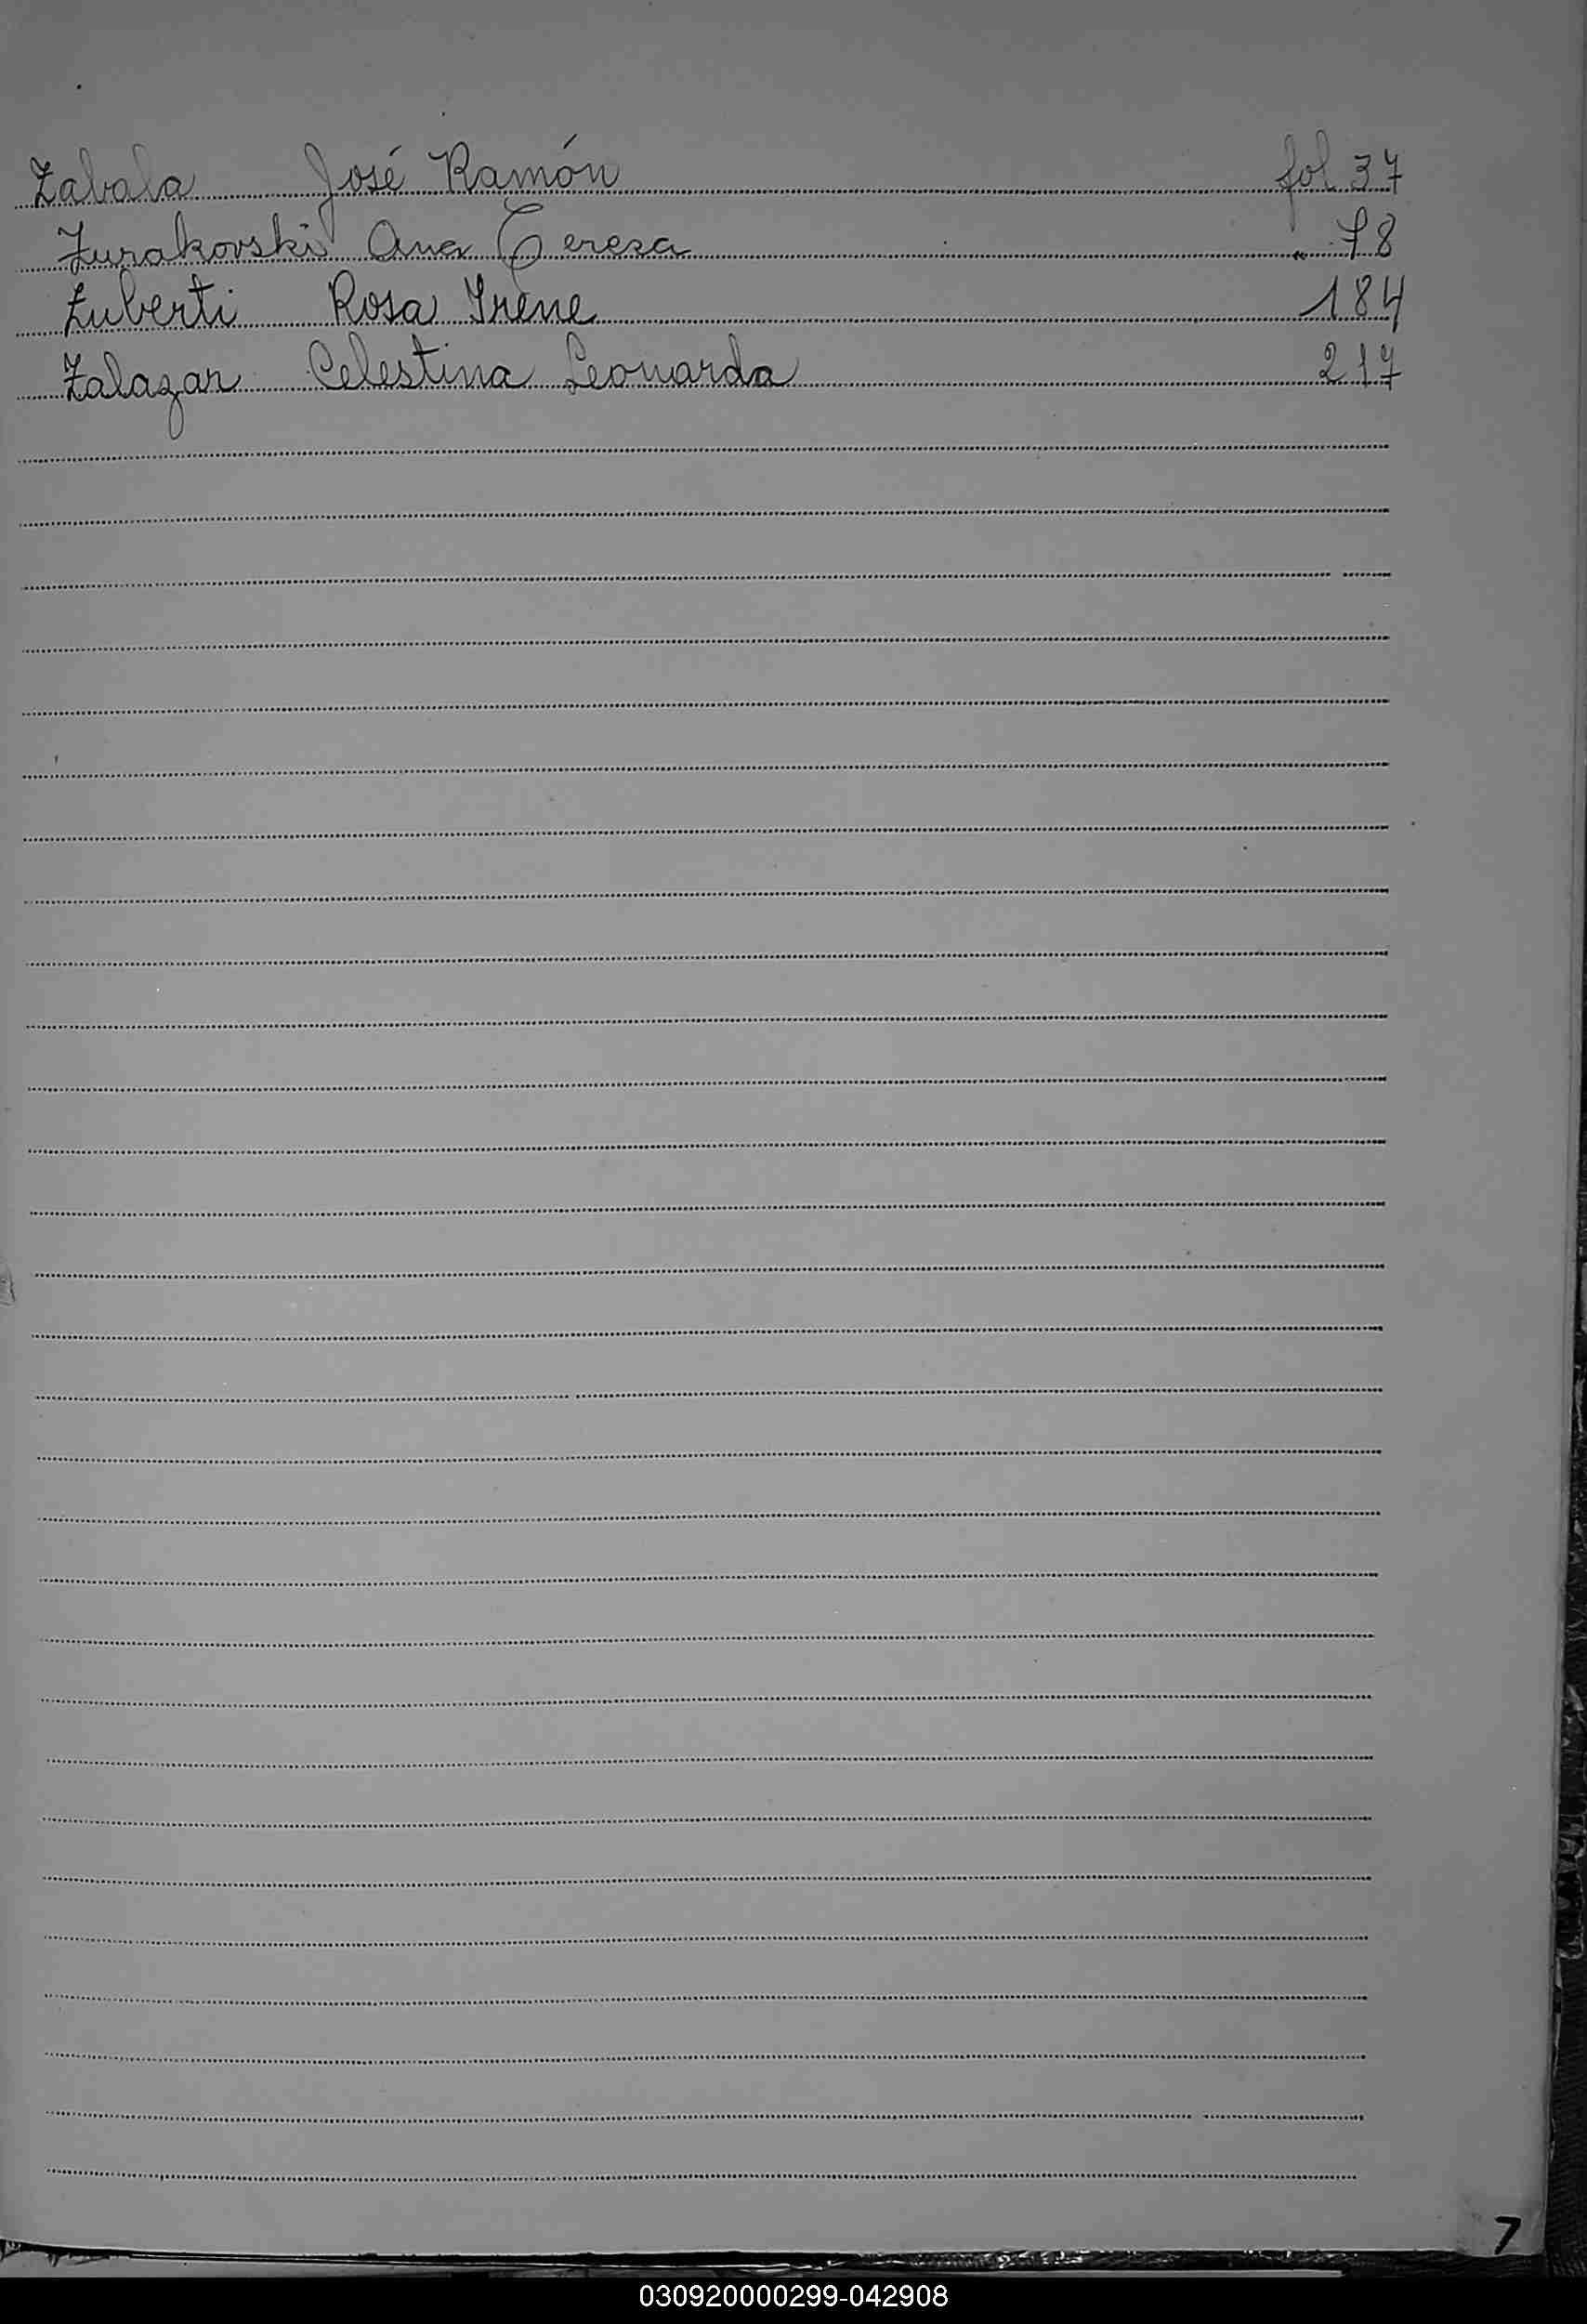 Zabala José Ramón fol 37
Zurakovski Ana Teresa " 78
Zuberti Rosa Irene 184
Zalazar Celestina Leonarda 217
7
030920000299-042908